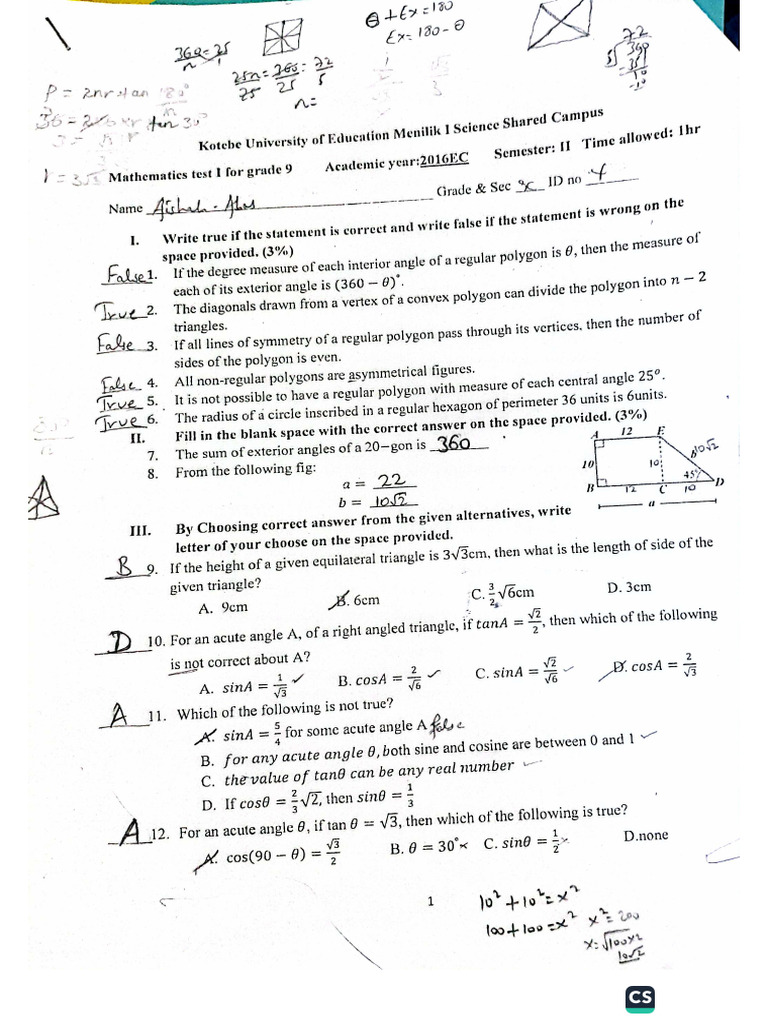 θ + Ex = 180
Ex = 180 - θ
360 = 25
n
25n = 360 = 72
25 25 5
n =
72
5 360
35
10
-10
P = 2nr tan 180°
n
36 =
tan 30°
Kotebe University of Education Menilik I Science Shared Campus
Mathematics test I for grade 9 Academic year:2016EC Semester: II Time allowed: 1hr
Name Grade & Sec ID no
I. Write true if the statement is correct and write false if the statement is wrong on the
space provided. (3%)
False 1. If the degree measure of each interior angle of a regular polygon is θ, then the measure of
each of its exterior angle is (360 − θ)°.
True 2. The diagonals drawn from a vertex of a convex polygon can divide the polygon into n − 2
triangles.
False 3. If all lines of symmetry of a regular polygon pass through its vertices, then the number of
sides of the polygon is even.
False 4. All non-regular polygons are asymmetrical figures.
True 5. It is not possible to have a regular polygon with measure of each central angle 25°.
True 6. The radius of a circle inscribed in a regular hexagon of perimeter 36 units is 6units.
II. Fill in the blank space with the correct answer on the space provided. (3%)
7. The sum of exterior angles of a 20−gon is 360
8. From the following fig:
a = 22
b = 10√2
A 12 E
10 10 b 10√2
45°
B 12 C 10 D
a
III. By Choosing correct answer from the given alternatives, write
letter of your choose on the space provided.
B 9. If the height of a given equilateral triangle is 3√3cm, then what is the length of side of the
given triangle?
A. 9cm B. 6cm C. 3/2 √6cm D. 3cm
D 10. For an acute angle A, of a right angled triangle, if tanA = √2/2, then which of the following
is not correct about A?
A. sinA = 1/√3 ✓ B. cosA = 2/√6 ✓ C. sinA = √2/√6 ✓ D. cosA = 2/√3
A 11. Which of the following is not true?
A. sinA = 5/4 for some acute angle A false
B. for any acute angle θ, both sine and cosine are between 0 and 1 ✓
C. the value of tanθ can be any real number ✓
D. If cosθ = 2/3 √2, then sinθ = 1/3
A 12. For an acute angle θ, if tan θ = √3, then which of the following is true?
A. cos(90 − θ) = √3/2 B. θ = 30° × C. sinθ = 1/2 × D.none
1
10² + 10² = x²
100 + 100 = x² x² = 200
x = √100×2
10√2
CS